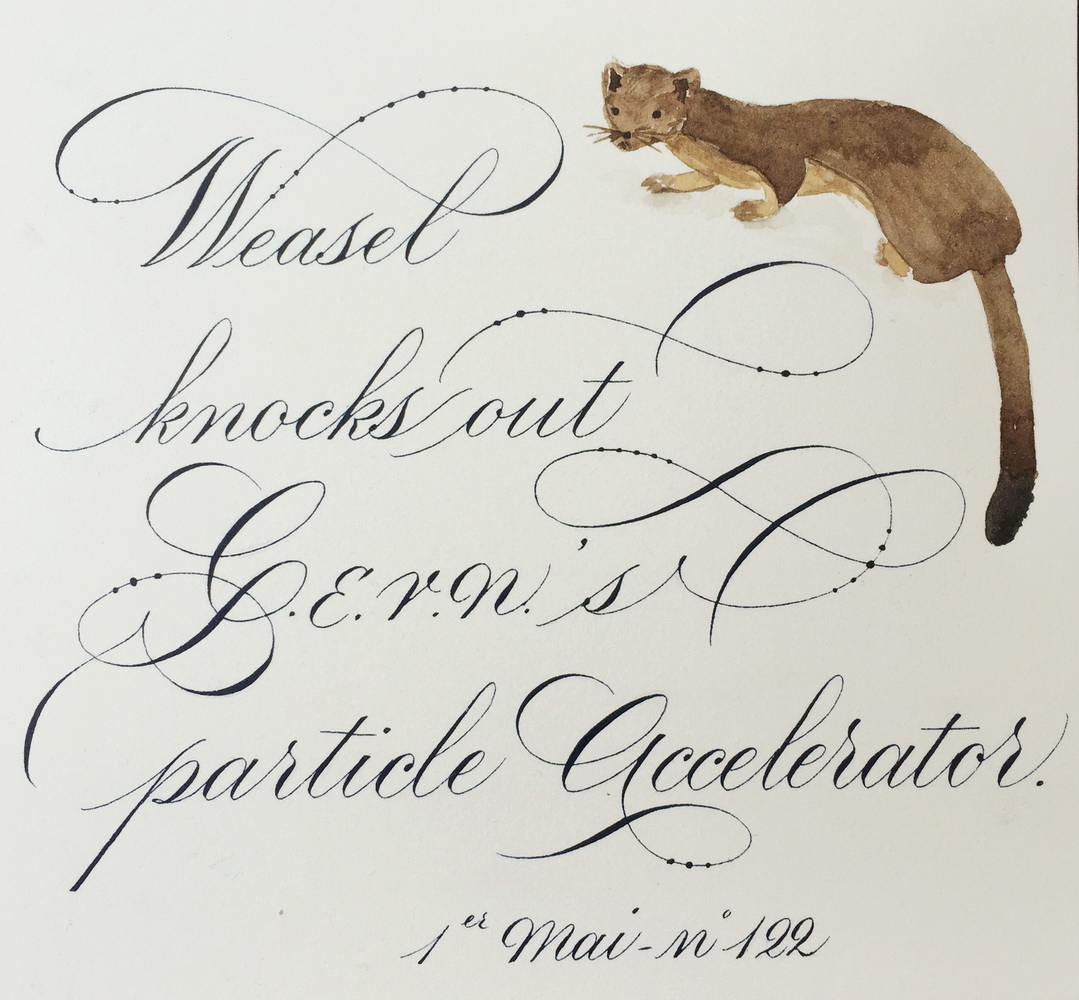 Weasel
knocks out
C.E.r.n.'s
particle Accelerator.
1er Mai - n° 122